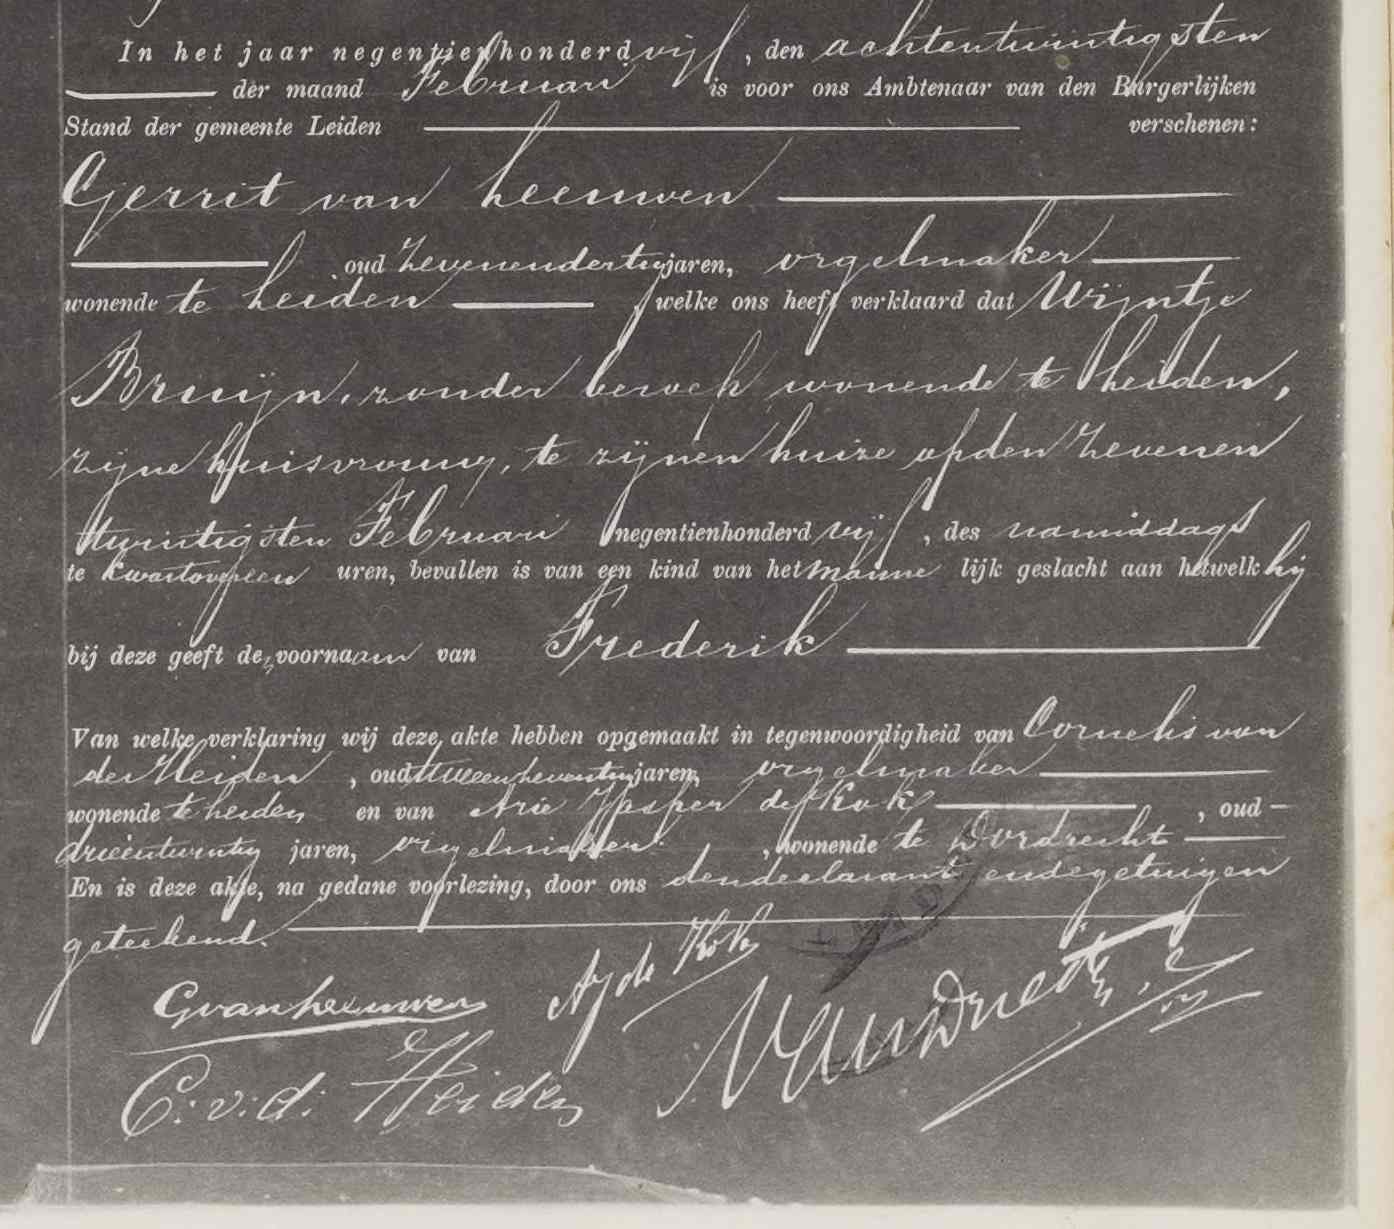 In het jaar negentienhonderd vijf, den achtentwintigsten
der maand Februari is voor ons Ambtenaar van den Burgerlijken
Stand der gemeente Leiden verschenen:
Gerrit van Leeuwen
oud zevenendertig jaren, orgelmaker
wonende te Leiden welke ons heeft verklaard dat Wijntje
Bruijn, zonder beroep wonende te Leiden,
zijne huisvrouw, te zijnen huize op den zevenen
twintigsten Februari negentienhonderd vijf, des namiddags
te kwartovereen uren, bevallen is van een kind van het manne lijk geslacht aan hetwelk hij
bij deze geeft den voornaam van Frederik
Van welke verklaring wij deze akte hebben opgemaakt in tegenwoordigheid van Cornelis van
der Heiden, oud tweeenzeventig jaren, orgelmaker
wonende te Leiden en van Arie Jasper de Kok, oud
drieëntwintig jaren, orgelmaker, wonende te Dordrecht
En is deze akte, na gedane voorlezing, door ons den declarant en de getuigen
geteekend.
GvanLeeuwen AJ de Kok
C. v. d. Heiden